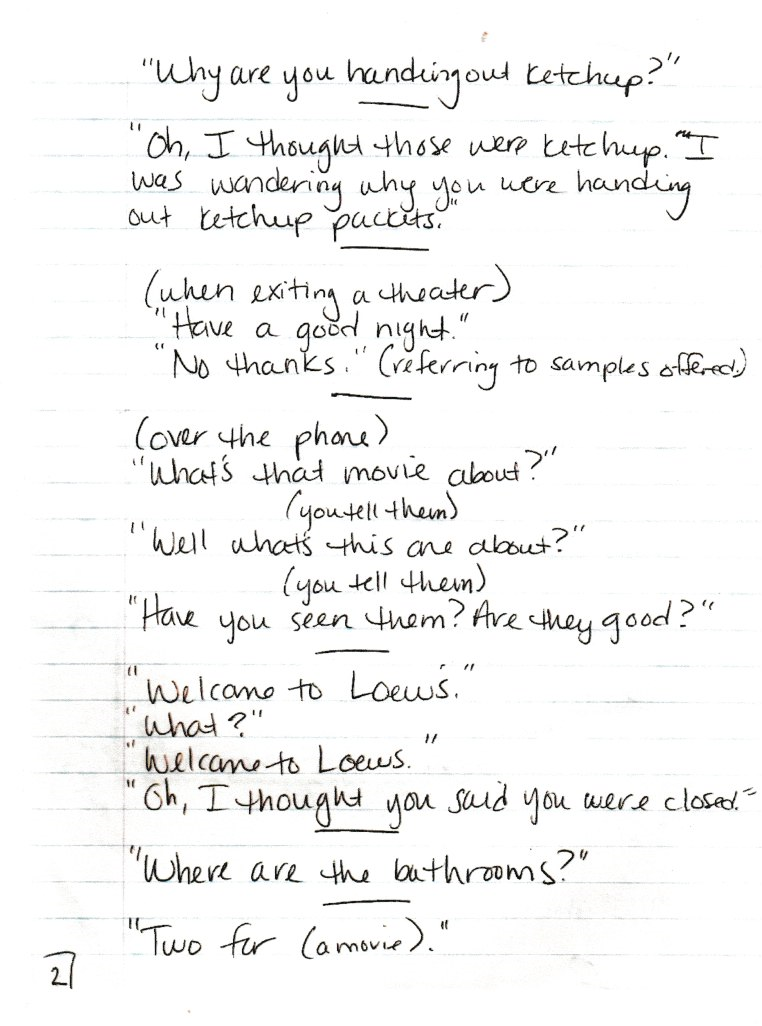 "Why are you handing out ketchup?"
"Oh, I thought those were ketchup." "I
was wandering why you were handing
out ketchup packets."
(when exiting a theater)
"Have a good night."
"No thanks." (referring to samples offered.)
(over the phone)
"What's that movie about?"
(you tell them)
"Well what's this one about?"
(you tell them)
"Have you seen them? Are they good?"
"Welcome to Loew's."
"What?"
"Welcome to Loews."
"Oh, I thought you said you were closed."
"Where are the bathrooms?"
"Two for (a movie)."
2